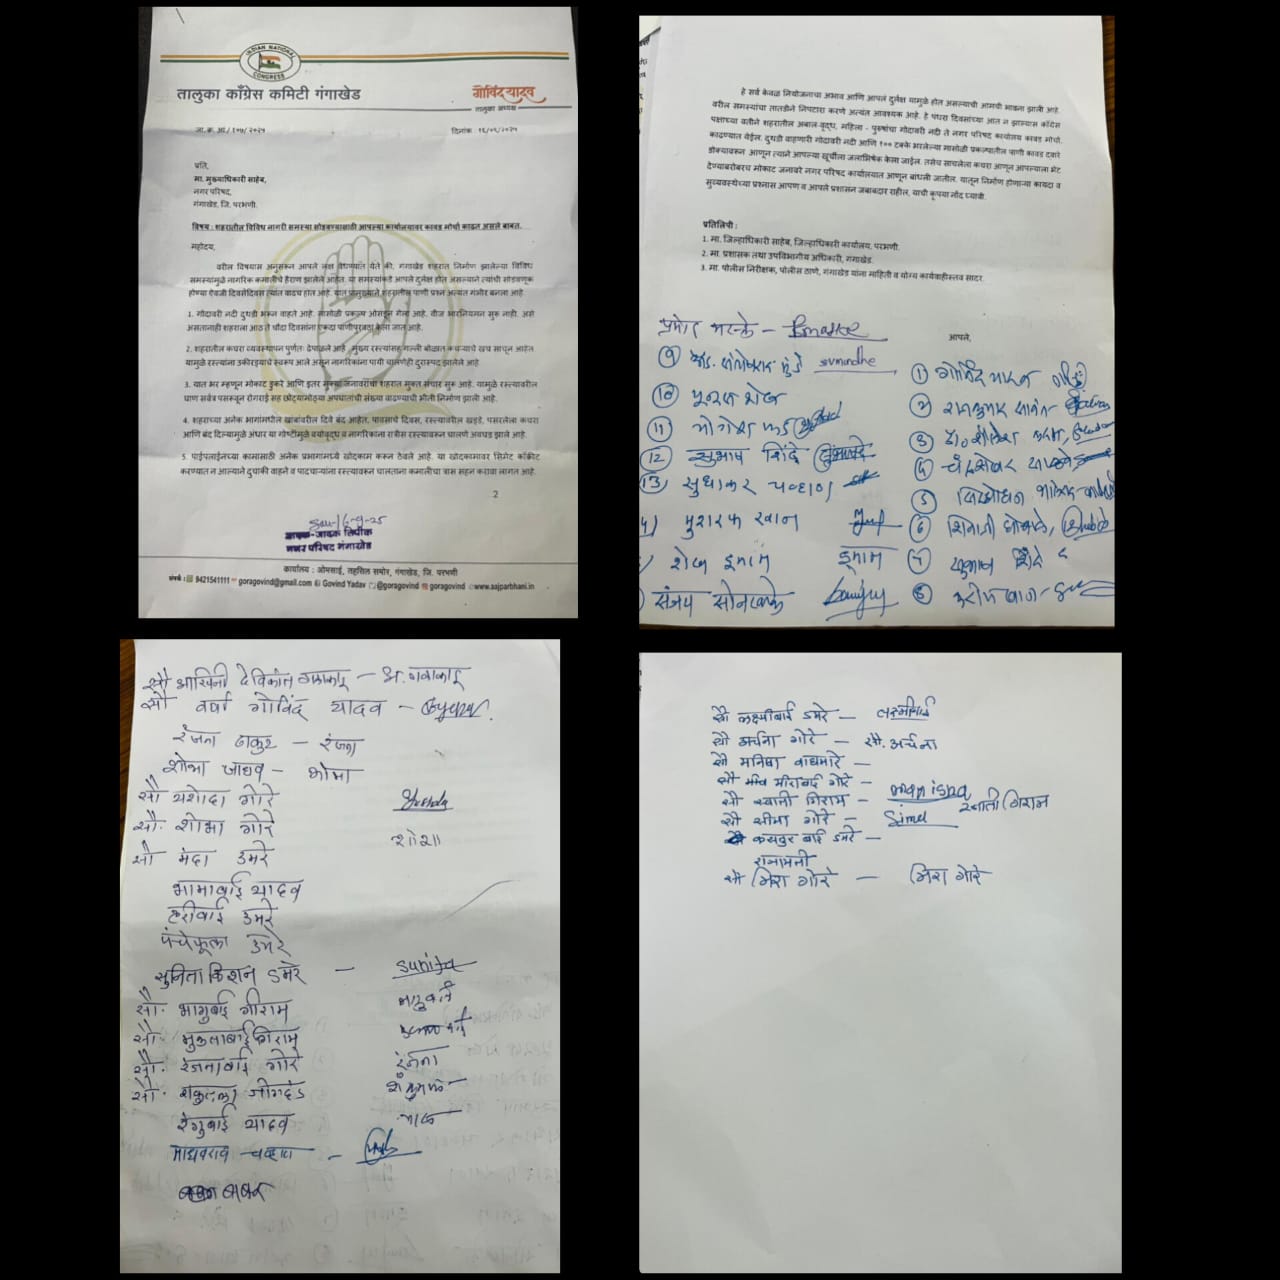 INDIAN NATIONAL
CONGRESS
तालुका काँग्रेस कमिटी गंगाखेड
गोविंद यादव
तालुका अध्यक्ष
दिनांक
प्रति,
मा. मुख्याधिकारी साहेब,
नगर परिषद,
गंगाखेड, जि. परभणी.
विषय : शहरातील विविध नागरी समस्या सोडवण्यासाठी आपल्या कार्यालयावर कावड मोर्चा काढत असले बाबत.
महोदय,
वरील विषयास अनुसरून आपले लक्ष वेधण्यात येते की, गंगाखेड शहरात निर्माण झालेल्या विविध
समस्यांमुळे नागरिक कमालीचे हैराण झालेले आहेत. या समस्यांकडे आपले दुर्लक्ष होत असल्याने त्यांची सोडवणूक
होण्या ऐवजी दिवसेंदिवस त्यात वाढच होत आहे. यात प्रामुख्याने शहरातील पाणी प्रश्न अत्यंत गंभीर बनला आहे.
1. गोदावरी नदी दुथडी भरून वाहते आहे. मासोळी प्रकल्प ओसंडून गेला आहे. वीज भारनियमन सुरू नाही. असे
असतानाही शहराला आठ ते चौदा दिवसांना एकदा पाणीपुरवठा केला जात आहे.
2. शहरातील कचरा व्यवस्थापन पुर्णतः ढेपाळले आहे. मुख्य रस्त्यांसह गल्ली बोळात कचऱ्याचे खच साचून आहेत.
यामुळे रस्त्यांना उकीरड्याचे स्वरूप आले असून नागरिकांना पायी चालणेही दुरापास्त झालेले आहे.
3. यात भर म्हणून मोकाट डुकरे आणि इतर मुक्या जनावरांचा शहरात मुक्त संचार सुरू आहे. यामुळे रस्त्यावरील
घाण सर्वत्र पसरून रोगराई सह छोट्यामोठ्या अपघातांची संख्या वाढण्याची भीती निर्माण झाली आहे.
4. शहराच्या अनेक भागांमधील खांबांवरील दिवे बंद आहेत. पावसाचे दिवस, रस्त्यावरील खड्डे, पसरलेला कचरा
आणि बंद दिव्यामुळे अंधार या गोष्टींमुळे वयोवृध्द व नागरिकांना रात्रीस रस्त्यावरून चालणे अवघड झाले आहे.
5. पाईपलाईनच्या कामासाठी अनेक प्रभागामध्ये खोदकाम करून ठेवले आहे. या खोदकामावर सिमेंट काँक्रीट
करण्यात न आल्याने दुचाकी वाहने व पादचाऱ्यांना रस्त्यावरून चालताना कमालीचा त्रास सहन करावा लागत आहे.
2
आवक-जावक लिपीक
नगर परिषद गंगाखेड
कार्यालय : ओमसाई, तहसिल समोर, गंगाखेड, जि. परभणी
संपर्क : 9421541111 goragovind@gmail.com Govind Yadav @goragovind goragovind www.aajparbhani.in
हे सर्व केवळ नियोजनाचा अभाव आणि आपलं दुर्लक्ष यामुळे होत असल्याची आमची भावना झाली आहे.
वरील समस्यांचा तातडीने निपटारा करणे अत्यंत आवश्यक आहे. हे पंधरा दिवसांच्या आत न झाल्यास काँग्रेस
पक्षाच्या वतीने शहरातील अबाल-वृध्द, महिला - पुरुषांचा गोदावरी नदी ते नगर परिषद कार्यालय कावड मोर्चा
काढण्यात येईल. दुथडी वाहणारी गोदावरी नदी आणि १०० टक्के भरलेल्या मासोळी प्रकल्पातील पाणी कावड द्वारे
डोक्यावरून आणून त्याने आपल्या खूर्चीला जलाभिषेक केला जाईल. तसेच साचलेला कचरा आणून आपल्याला भेट
देण्याबरोबरच मोकाट जनावरे नगर परिषद कार्यालयात आणून बांधली जातील. यातून निर्माण होणाऱ्या कायदा व
सुव्यवस्थेच्या प्रश्नास आपण व आपले प्रशासन जबाबदार राहील, याची कृपया नोंद घ्यावी.
प्रतिलिपी :
1. मा. जिल्हाधिकारी साहेब, जिल्हाधिकारी कार्यालय, परभणी.
2. मा. प्रशासक तथा उपविभागीय अधिकारी, गंगाखेड.
3. मा. पोलीस निरीक्षक, पोलीस ठाणे, गंगाखेड यांना माहिती व योग्य कार्यवाहीस्तव सादर.
आपले,
प्रमोद
मुंडे
① गोविंद यादव
शेख
② रामकुमार सावंत
11 योगेश फड
12 सुभाष शिंदे
13 सुधाकर चव्हाण
मुशरफ खान
⑥ शिवाजी
शेख इमाम इमाम
⑦ सुभाष शिंदे
संजय सोनटक्के
⑧ खान
सौ वर्षा गोविंद यादव -
रंजना ठाकुर - रंजना
शोभा जाधव - शोभा
सौ यशोदा गोरे
सौ. शोभा गोरे शोभा
सौ मंदा उमरे
भामाबाई यादव
हरीबाई उमरे
पंचफूला उमरे
सुनिता किशन उमरे - sunita
सौ. भागुबाई गीराम
सौ. मुक्ताबाई गिराम
सौ. रंजनाबाई गोरे रंजना
सौ. शकुंतला
रेणुबाई यादव
माधवराव चव्हाण -
सौ लक्ष्मीबाई उमरे - लक्ष्मीबाई
सौ अर्चना गोरे - सौ. अर्चना
सौ मनिषा वाघमारे -
सौ मीराबाई गोरे - manisha
सौ स्वाती गिराम - स्वाती गिराम
सौ सीमा गोरे - Sima
बाई उमरे -
सौ मिरा गोरे - मिरा गोरे